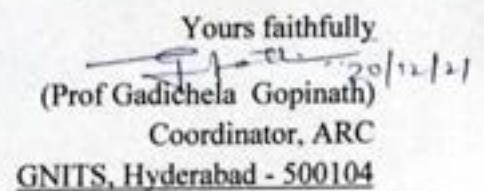 Yours faithfully
20/12/21
(Prof Gadichela Gopinath)
Coordinator, ARC
GNITS, Hyderabad - 500104